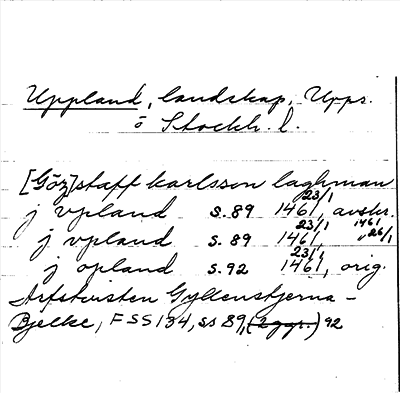 Uppland, landskap, Upps.
o Stockh. l.
[Göz]staff karlsson laghman
j vpland s. 89 23/1 1461, avskr.
j vpland s. 89 23/1 1461, 1461 26/1
j opland s. 92 23/1 1461, orig.
Arfstvisten Gyllenstjerna -
Bjelke, FSS 134, ss 89, (2 ggr.) 92